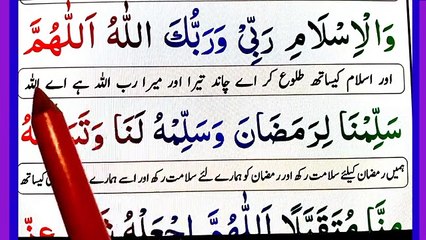 وَالْاِسْلَامِ رَبِّيْ وَرَبُّكَ اللّٰهُ اَللّٰهُمَّ
اور اسلام کیساتھ طلوع کر اے چاند تیرا اور میرا رب اللہ ہے اے اللہ
سَلِّمْنَا لِرَمَضَانَ وَسَلِّمْهُ لَنَا
ہمیں رمضان کیلئے سلامت رکھ اور رمضان کو ہمارے لئے سلامت رکھ اور اسے ہمارے کیساتھ
مِنَّا مُتَقَبَّلًا اَللّٰهُمَّ اجْعَلْهُ